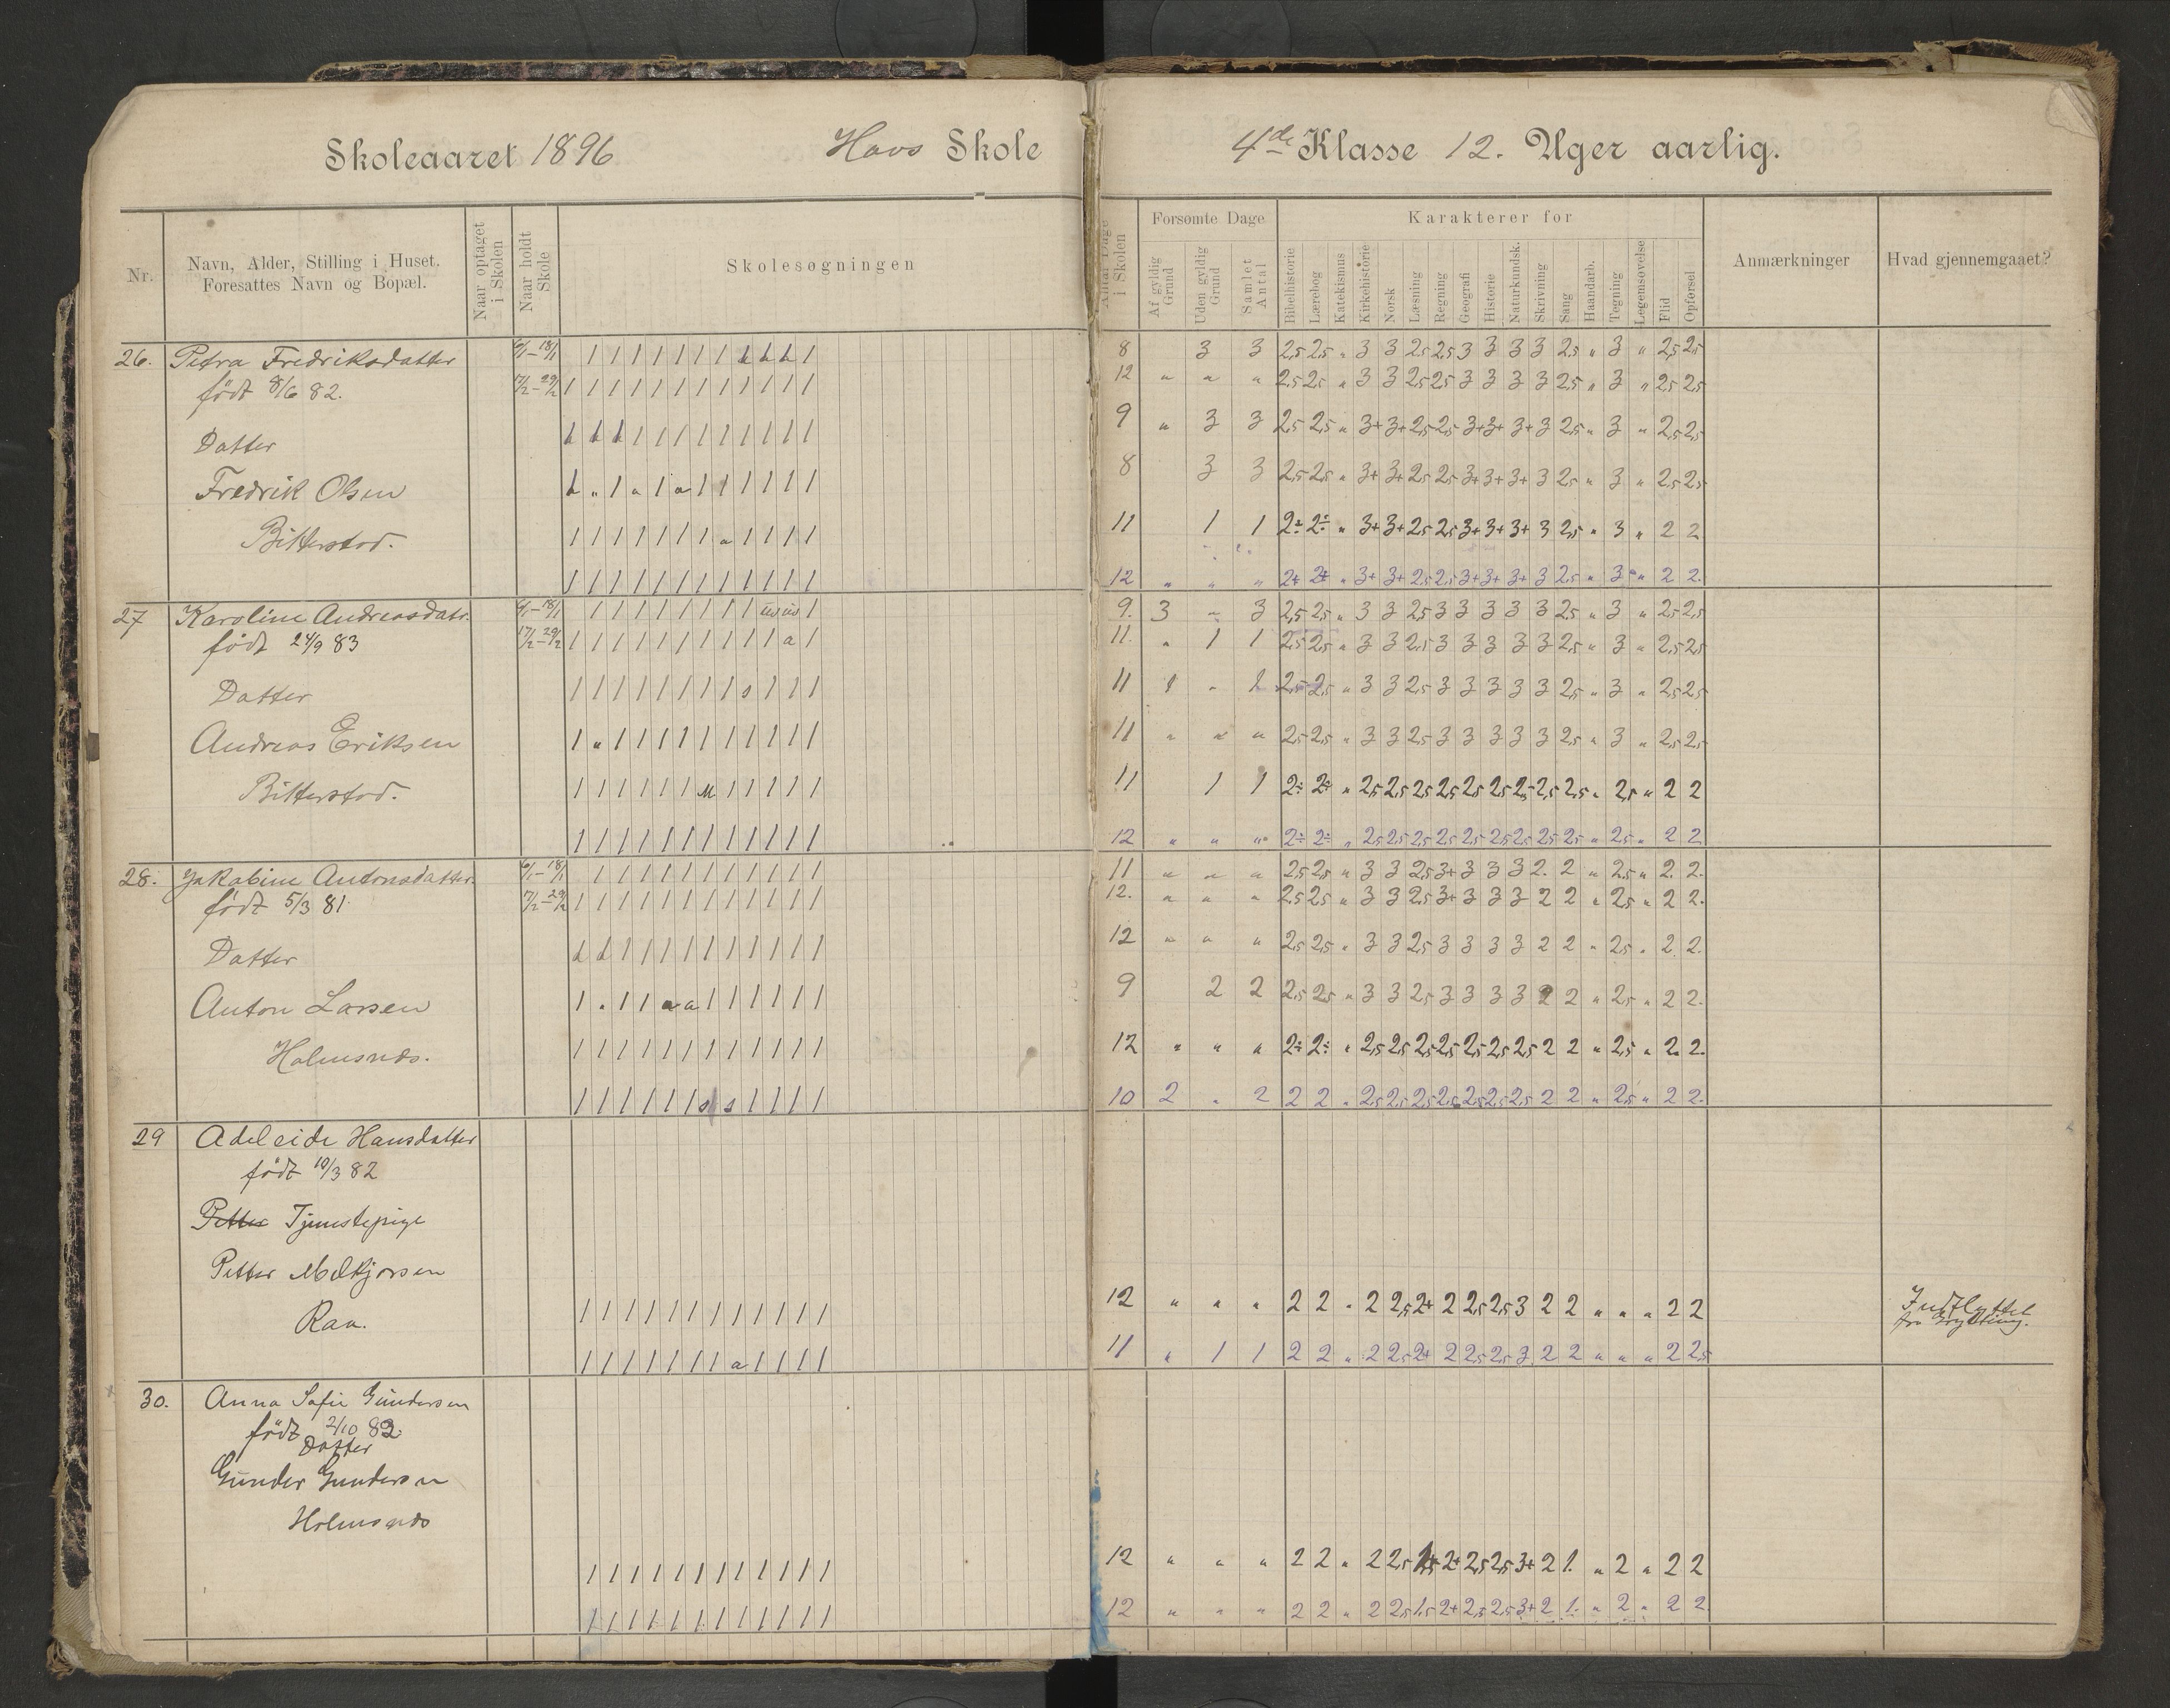 Skoleaaret 1896 Havs Skole 4de Klasse 12. Uger aarlig.
Nr. Navn, Alder, Stilling i Huset. Foresattes Navn og Bopæl. Naar optaget i Skolen Naar holdt Skole Skolesøgningen Antal Dage i Skolen Forsømte Dage Af gyldig Grund Uden gyldig Grund Samlet Antal Karakterer for Bibelhistorie Lærebog Katekismus Kirkehistorie Norsk Læsning Regning Geografi Historie Naturkundsk. Skrivning Sang Haandarb. Tegning Legemsøvelse Flid Opførsel Anmærkninger Hvad gjennemgaaet?
26. Petra Fredriksdatter 6/1-18/1 | | | | | | | h h h | 8 3 3 2,5 2,5 " 3 3 2,5 2,5 3 3 3 3 2,5 " 3 " 2,5 2,5
født 8/6 82. 17/2-29/2 | | | | | | | | | | | | 12 " " " 2,5 2,5 " 3 3 2,5 2,5 3 3 3 3 2,5 " 3 " 2,5 2,5
Datter h h h | | | | | | | | | 9 " 3 3 2,5 2,5 " 3+ 3+ 2,5 2,5 3+ 3+ 3+ 3 2,5 " 3 " 2,5 2,5
Fredrik Olsen h " | a | a | | | | | | 8 3 3 2,5 2,5 " 3+ 3+ 2,5 2,5 3+ 3+ 3+ 3 2,5 " 3 " 2,5 2,5
Bitterstad. | | | | | | | a | | | | 11 1 1 2÷ 2÷ " 3+ 3+ 2,5 2,5 3+ 3+ 3+ 3 2,5 " 3 " 2 2
| | | | | | | | | | | | 12 " " " 2÷ 2÷ " 3+ 3+ 2,5 2,5 3+ 3+ 3+ 3 2,5 " 3 " 2 2.
27 Karoline Andreasdatr. 6/1-18/1 | | | | | | | | uv uv | 9. 3 " 3 2,5 2,5 " 3 3 2,5 3 3 3 3 3 2,5 " 3 " 2,5 2,5
født 24/9 83 17/2-29/2 | | | | | | | | | | a | 11. " 1 1 2,5 2,5 " 3 3 2,5 3 3 3 3 3 2,5 " 3 " 2,5 2,5
Datter | | | | | | | | s | | | 11 1 " 1 2,5 2,5 " 3 3 2,5 3 3 3 3 3 2,5 " 3 " 2,5 2,5
Andreas Eriksen | " | | | | | | | | | | 11 " " " 2,5 2,5 " 3 3 2,5 3 3 3 3 3 2,5 " 3 " 2,5 2,5
Bitterstad. | | | | | | M | | | | | 11 1 1 2÷ 2÷ " 2,5 2,5 2,5 2,5 2,5 2,5 2,5 2,5 2,5 " 2,5 " 2 2
| | | | | | | | | | | | 12 " " " 2÷ 2÷ " 2,5 2,5 2,5 2,5 2,5 2,5 2,5 2,5 2,5 " 2,5 " 2 2
28. Jakobine Antonsdatter. 6/1-18/1 | | | | | | | | | | | 11 " " " 2,5 2,5 " 3 3 2,5 3+ 3 3 3 2. 2 " 2,5 " 2. 2.
født 5/3 81 17/2-29/2 | | | | | | | | | | | | 12. " " " 2,5 2,5 " 3 3 2,5 3+ 3 3 3 2 2 " 2,5 " 2 2.
Datter h h | | | | | | | | | | 12 " " " 2,5 2,5 " 3 3 2,5 3 3 3 3 2 2 " 2,5 " 2 2.
Anton Larsen | " | | a a | | | | | | 9 2 2 2,5 2,5 " 3 3 2,5 3 3 3 3 2 2 " 2,5 " 2 2.
Holmsnds. | | | | | | | | | | | | 12 " " " 2÷ 2÷ " 2,5 2,5 2,5 2,5 2,5 2,5 2,5 2 2 " 2,5 " 2. 2.
| | | | | | s s | | | | 10 2 " 2 2 2 " 2,5 2,5 2,5 2,5 2,5 2,5 2,5 2 2 " 2,5 " 2 2.
29 Adeleide Hansdatter
født 10/3 82
Petter Tjenestepige
Petter Melkjorsen
Raa. | | | | | | | | | | | | 12 " " " 2 2 " 2 2,5 2+ 2 2,5 2,5 3 2 2 " " " 2 2 Indflyttet fra Grytting.
| | | | | | | a | | | | 11 " 1 1 2 2 " 2 2,5 2+ 2 2,5 2,5 3 2 2 " " " 2 2,5
30. Anna Sofie Gundersen
født 2/10 82
Datter
Gunder Gundersen
Holmsnds
| | | | | | | | | | | | 12 " " " 2 2 " 2 2,5 1,5 2+ 2,5 2,5 3+ 2 1. " 2 " 2 2
| | | | | | | | | | | | 12 " " " 2 2 " 2 2,5 1,5 2+ 2,5 2,5 3+ 2 1. " 2 " 2 2